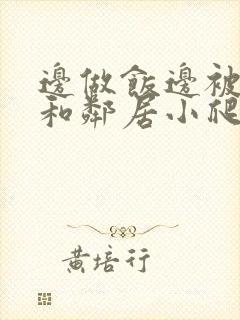 邊做飯邊被
和鄰居小爬
黃培行